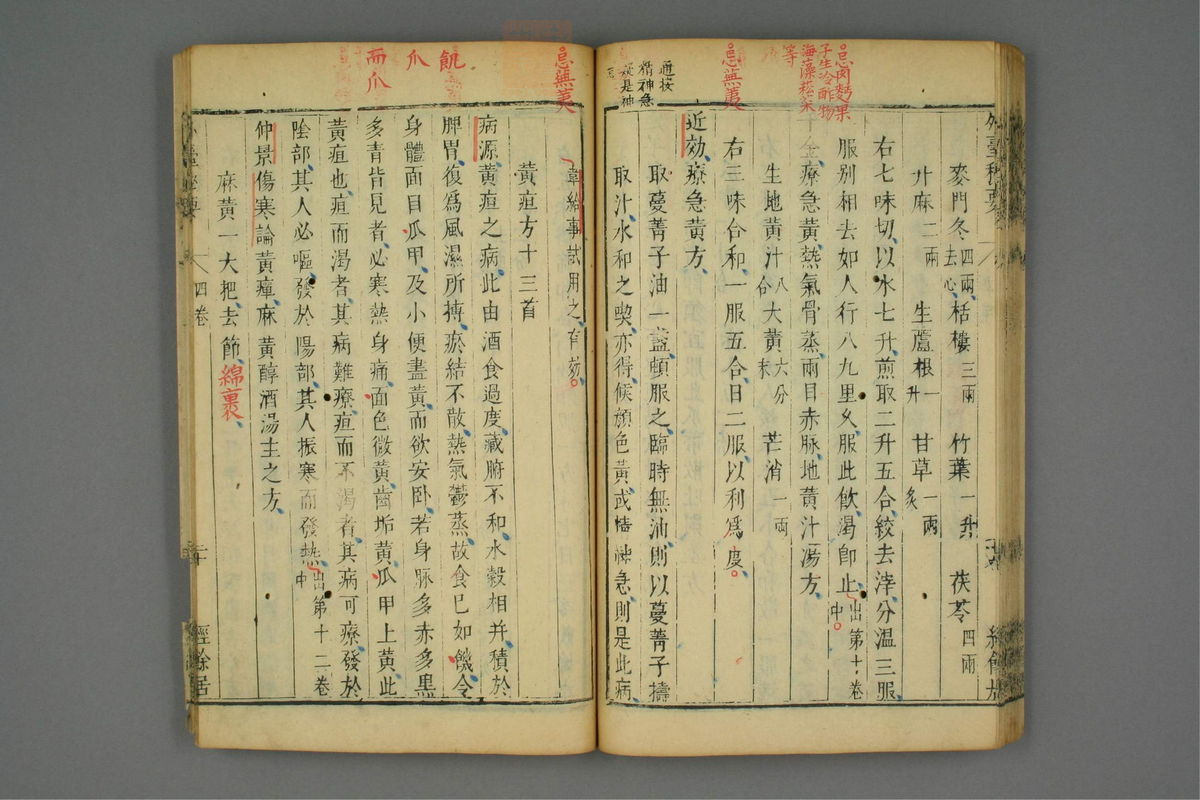 忌肉麪果
子生冷酢物
海藻菘菜
等
忌蕪荑
通按
精神急
疑是神
外臺秘要
麥門冬四兩去心 栝樓三兩 竹葉一升 茯苓四兩
升麻二兩 生蘆根一升 甘草一兩炙
右七味切以水七升煎取二升五合絞去滓分溫三服
服別相去如人行八九里久服此飲渴卽止出第十卷中
療急黃熱氣骨蒸兩目赤脉地黃汁湯方
生地黃汁八合 大黃六分末 芒消一兩
右三味合和一服五合日二服以利爲度
近効療急黃方
取蔓菁子油一盞頓服之臨時無油則以蔓菁子擣
取汁水和之喫亦得候顔色黃或精神急則是此病
忌蕪荑
飢
爪
而爪
韋給事試用之有効
黃疸方十三首
病源黃疸之病此由酒食過度藏腑不和水穀相并積於
脾胃復爲風濕所搏瘀結不散熱氣鬱蒸故食已如饑令
身體面目瓜甲及小便盡黃而欲安卧若身脉多赤多黑
多青皆見者必寒熱身痛面色微黃齒垢黃瓜甲上黃此
黃疸也疸而渴者其病難療疸而不渴者其病可療發於
陰部其人必嘔發於陽部其人振寒而發熱出第十二卷中
仲景傷寒論黃癉麻黃醇酒湯主之方
麻黃一大把去節綿裹
四卷
二十
經餘居